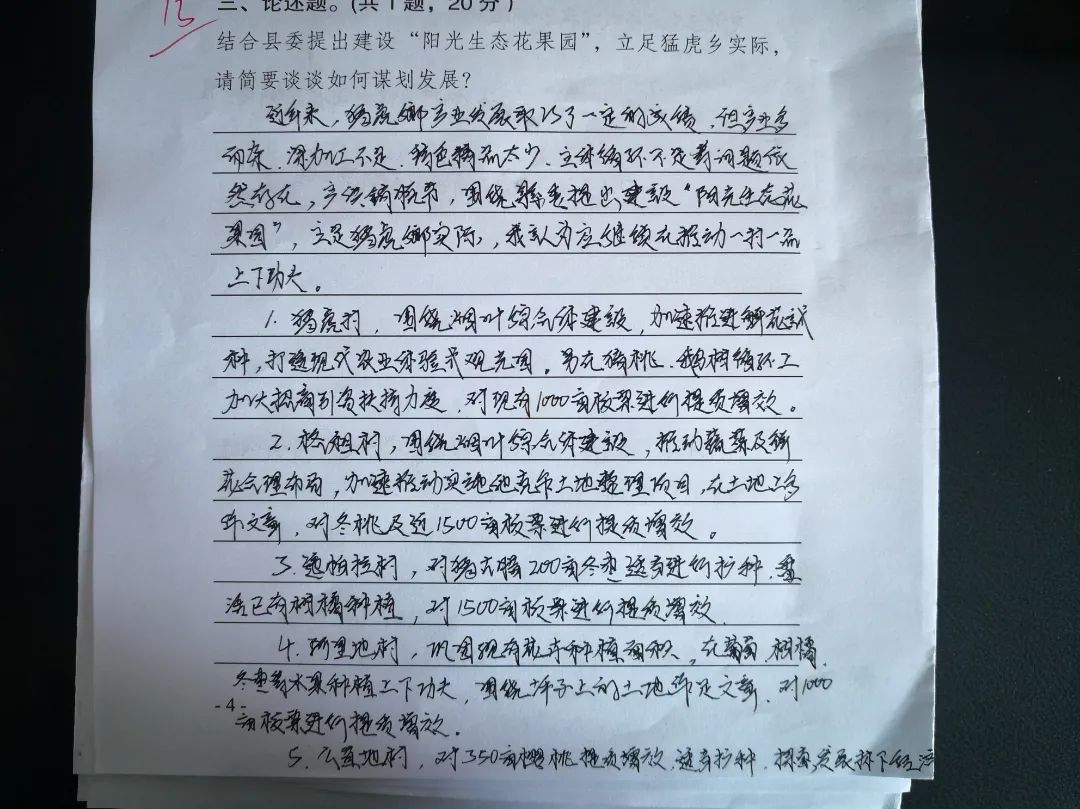 15
三、论述题。(共1题，20分)
结合县委提出建设“阳光生态花果园”，立足猛虎乡实际，
请简要谈谈如何谋划发展？
近年来，猛虎乡产业发展取得了一定的成绩，但产业多
而杂、深加工不足、特色精品太少、主体循环不足等问题依
然存在，产供销脱节，围绕县委提出建设“阳光生态花
果园”，立足猛虎乡实际，我认为应继续在推动一村一品
上下功夫。
1. 猛虎村，围绕烟叶综合体建设，加速推进鲜花试
种，打造现代农业体验式观光园。另在樱桃、循环上
加大招商引资扶持力度，对现有1000亩板栗进行提质增效。
2. 格租村，围绕烟叶综合体建设，推动蔬菜及鲜
花合理布局，加速推动实施土地整理项目，在土地上多
作文章，对冬桃及近1500亩板栗进行提质增效。
3. 迤帕拉村，对猛古腊200亩冬枣适当进行扩种，盘
活已有柑橘种植，对1500亩板栗进行提质增效
4. 阿里地村，巩固现有花卉种植面积，在葡萄、柑橘、
冬枣等水果种植上下功夫，围绕坪子上的土地作足文章，对1000
-4-
亩板栗进行提质增效。
5. 么基地村，对350亩樱桃提质增效，适当扩种，探索发展林下经济